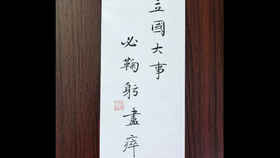 立國大事
必鞠躬盡瘁